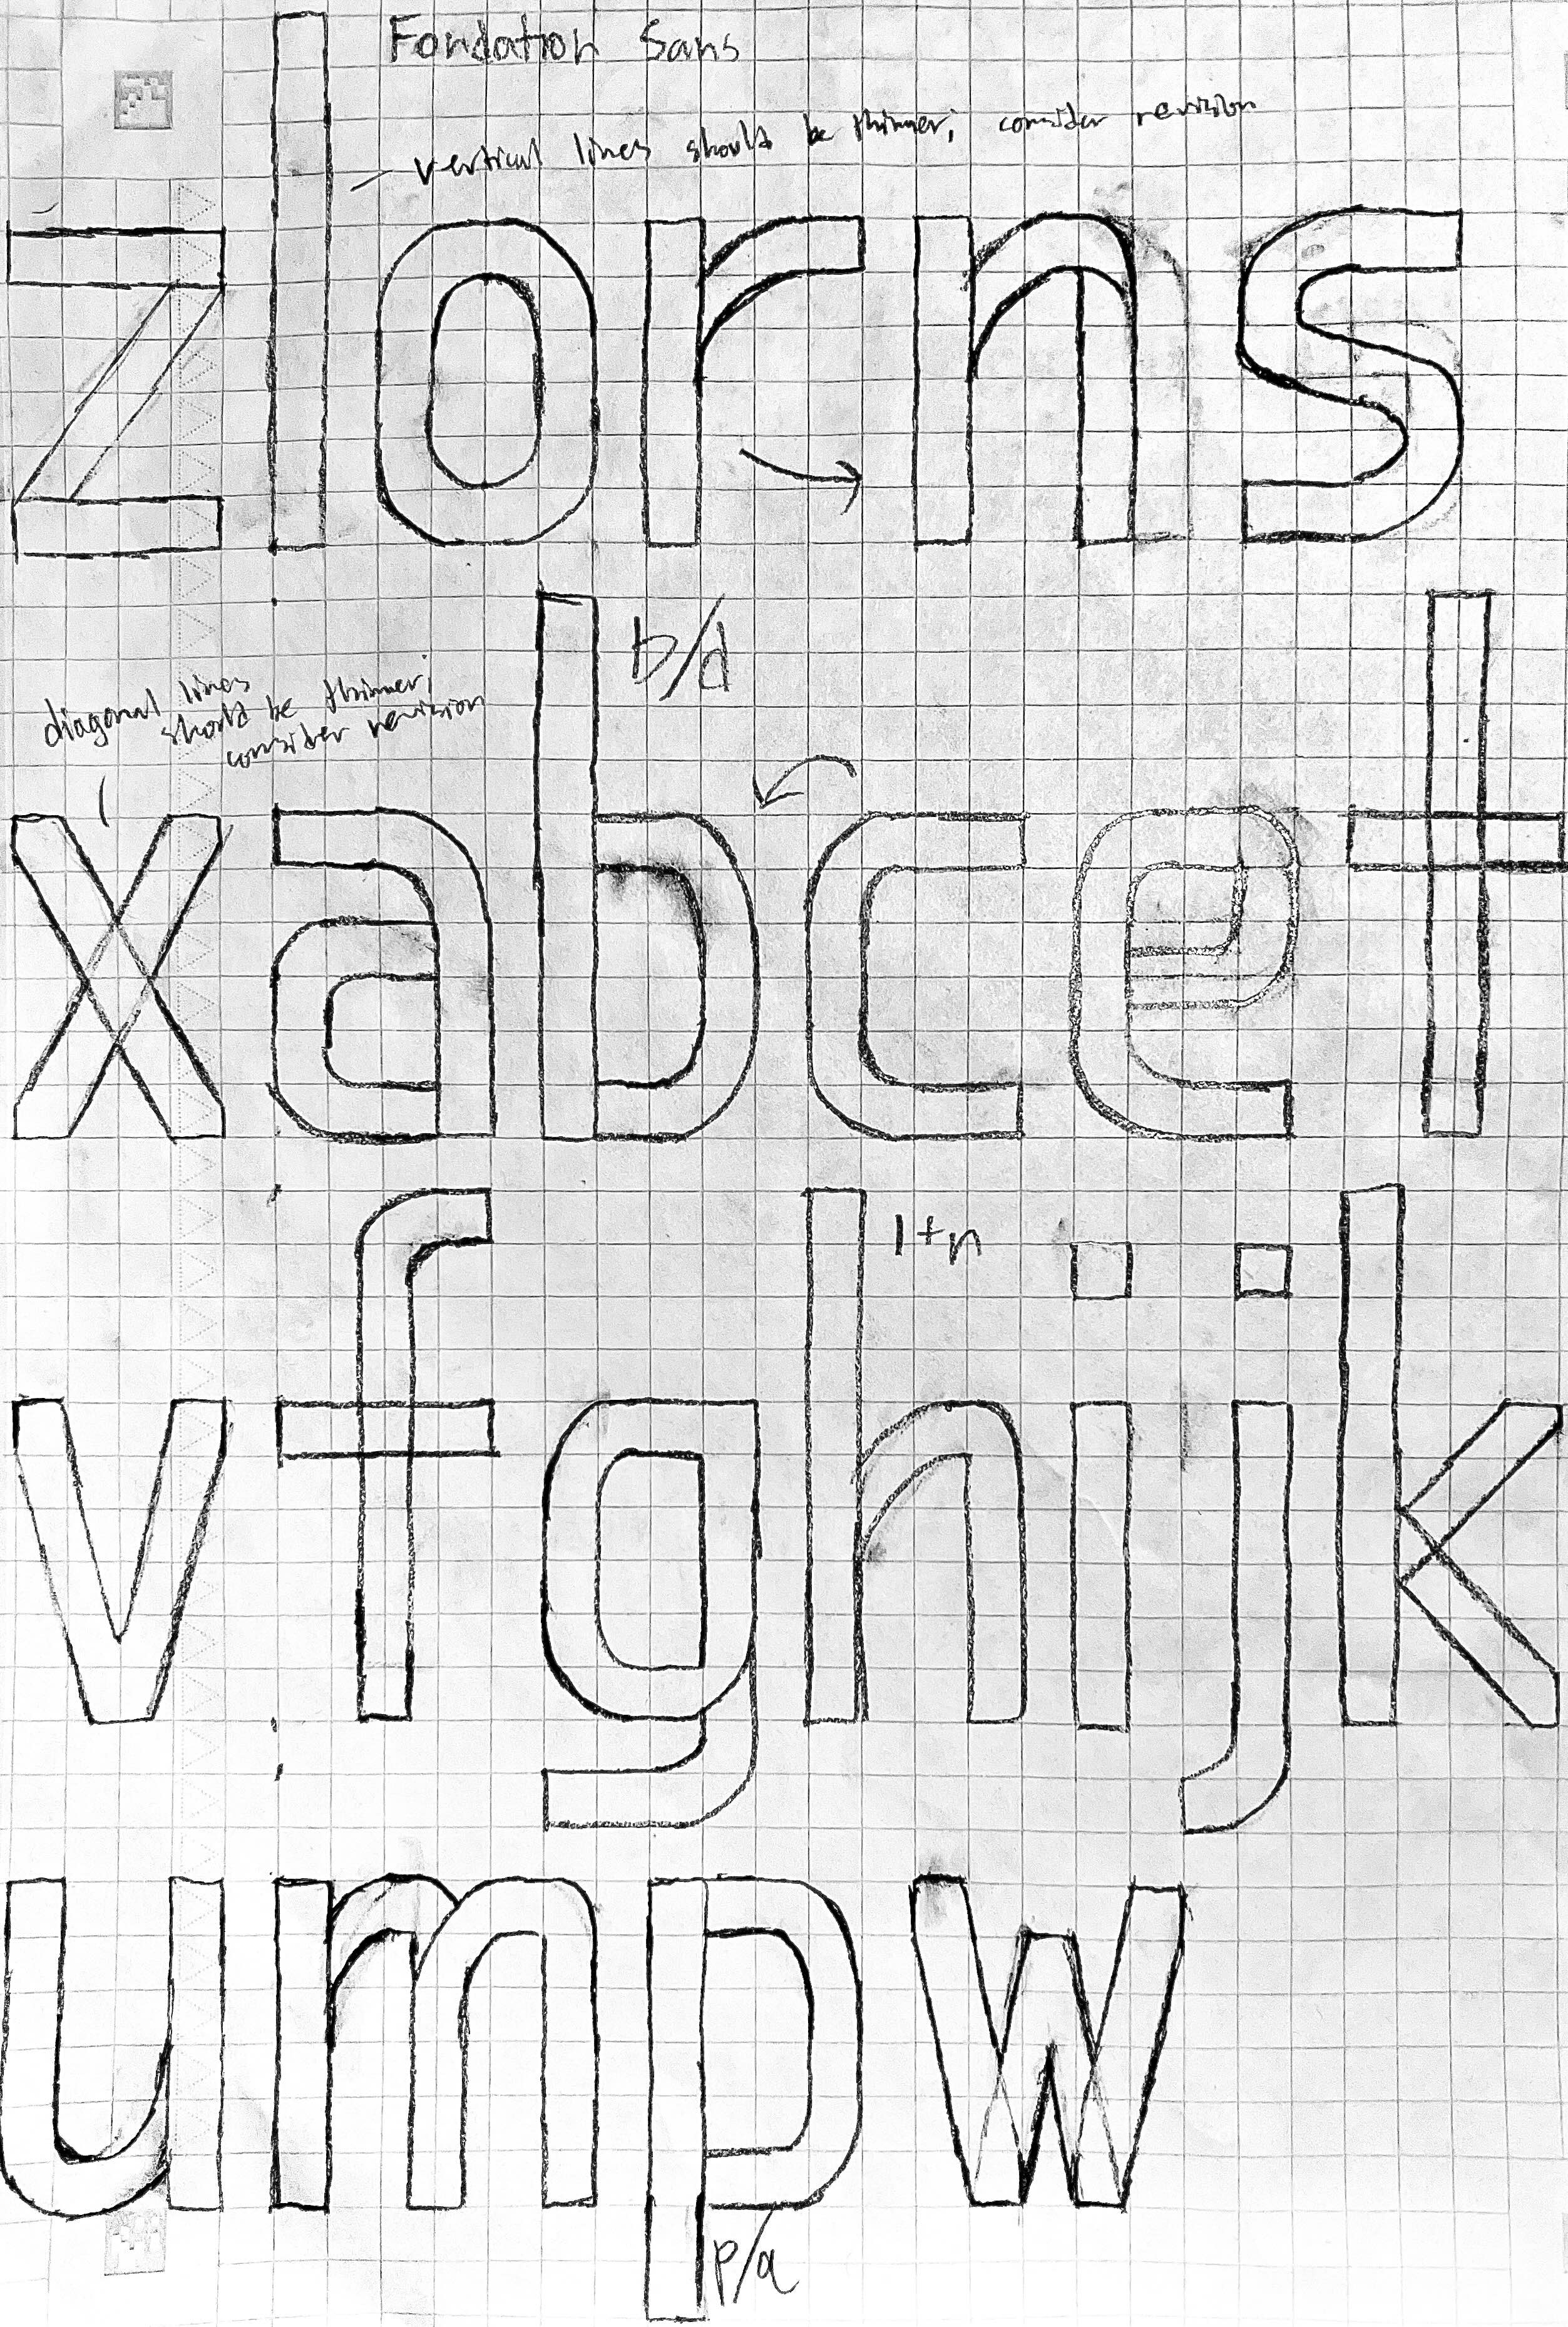 Fondation Sans
– vertical lines should be thinner; consider revision
zlorns
b/d
diagonal lines
should be thinner;
consider revision
xabcet
l+n
vfghijk
umpw
p/q